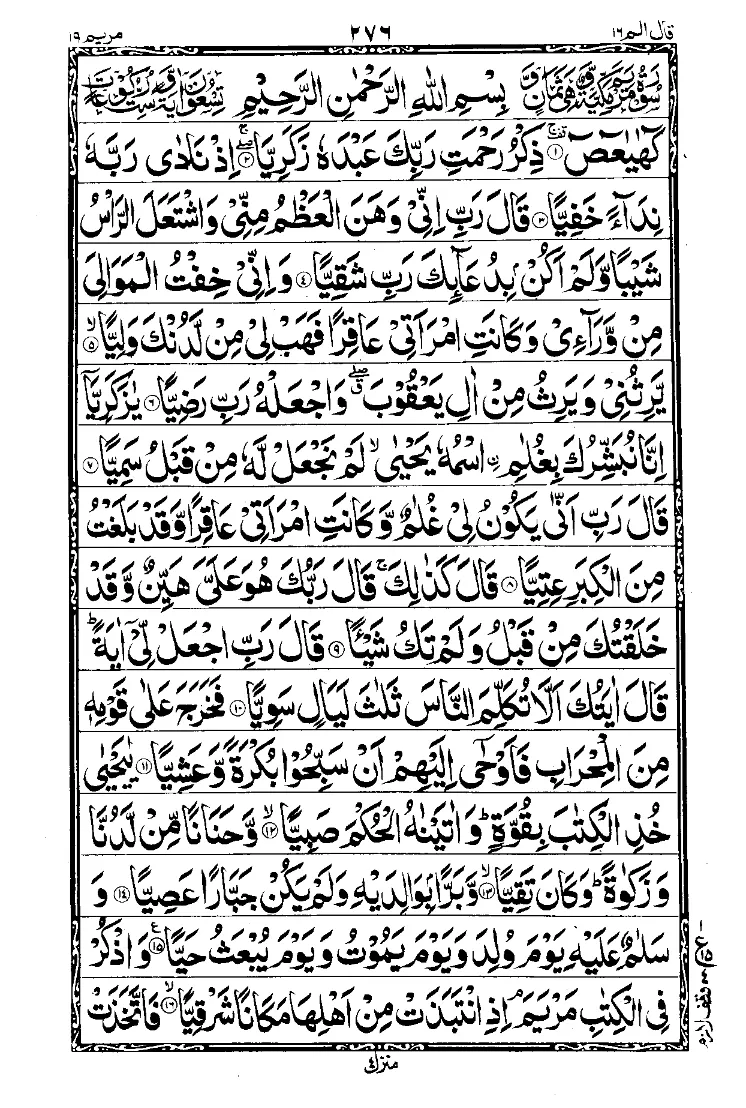 قال الم ١٦
٢٧٦
مريم ١٩
سُوْرَةُ مَرْيَمَ مَكِّيَّةٌ وَّهِىَ ثَمَانٌ وَّ بِسْمِ اللّٰهِ الرَّحْمٰنِ الرَّحِيْمِ تِسْعُوْنَ اٰيَةً وَّ سِتُّ رُكُوْعَاتٍ
كٓهٰيٰعٓصٓ ۝١ ذِكْرُ رَحْمَتِ رَبِّكَ عَبْدَهٗ زَكَرِيَّا ۝٢ اِذْ نَادٰى رَبَّهٗ
نِدَآءً خَفِيًّا ۝٣ قَالَ رَبِّ اِنِّىْ وَهَنَ الْعَظْمُ مِنِّىْ وَاشْتَعَلَ الرَّاْسُ
شَيْبًا وَّلَمْ اَكُنْۢ بِدُعَآئِكَ رَبِّ شَقِيًّا ۝٤ وَاِنِّىْ خِفْتُ الْمَوَالِىَ
مِنْ وَّرَآءِىْ وَكَانَتِ امْرَاَتِىْ عَاقِرًا فَهَبْ لِىْ مِنْ لَّدُنْكَ وَلِيًّا ۝٥
يَّرِثُنِىْ وَيَرِثُ مِنْ اٰلِ يَعْقُوْبَ وَاجْعَلْهُ رَبِّ رَضِيًّا ۝٦ يٰزَكَرِيَّآ
اِنَّا نُبَشِّرُكَ بِغُلٰمِ ِۨ اسْمُهٗ يَحْيٰى لَمْ نَجْعَلْ لَّهٗ مِنْ قَبْلُ سَمِيًّا ۝٧
قَالَ رَبِّ اَنّٰى يَكُوْنُ لِىْ غُلٰمٌ وَّكَانَتِ امْرَاَتِىْ عَاقِرًا وَّقَدْ بَلَغْتُ
مِنَ الْكِبَرِ عِتِيًّا ۝٨ قَالَ كَذٰلِكَ ۚ قَالَ رَبُّكَ هُوَ عَلَىَّ هَيِّنٌ وَّقَدْ
خَلَقْتُكَ مِنْ قَبْلُ وَلَمْ تَكُ شَيْـًٔا ۝٩ قَالَ رَبِّ اجْعَلْ لِّىْٓ اٰيَةً ؕ
قَالَ اٰيَتُكَ اَلَّا تُكَلِّمَ النَّاسَ ثَلٰثَ لَيَالٍ سَوِيًّا ۝١٠ فَخَرَجَ عَلٰى قَوْمِهٖ
مِنَ الْمِحْرَابِ فَاَوْحٰٓى اِلَيْهِمْ اَنْ سَبِّحُوْا بُكْرَةً وَّعَشِيًّا ۝١١ يٰيَحْيٰى
خُذِ الْكِتٰبَ بِقُوَّةٍ ؕ وَاٰتَيْنٰهُ الْحُكْمَ صَبِيًّا ۝١٢ وَّحَنَانًا مِّنْ لَّدُنَّا
وَزَكٰوةً ؕ وَكَانَ تَقِيًّا ۝١٣ وَّبَرًّۢا بِوَالِدَيْهِ وَلَمْ يَكُنْ جَبَّارًا عَصِيًّا ۝١٤ وَ
سَلٰمٌ عَلَيْهِ يَوْمَ وُلِدَ وَيَوْمَ يَمُوْتُ وَيَوْمَ يُبْعَثُ حَيًّا ۝١٥ وَاذْكُرْ
فِى الْكِتٰبِ مَرْيَمَ ۘ اِذِ انْتَبَذَتْ مِنْ اَهْلِهَا مَكَانًا شَرْقِيًّا ۝١٦ فَاتَّخَذَتْ
وقف لازم
منزل ٤